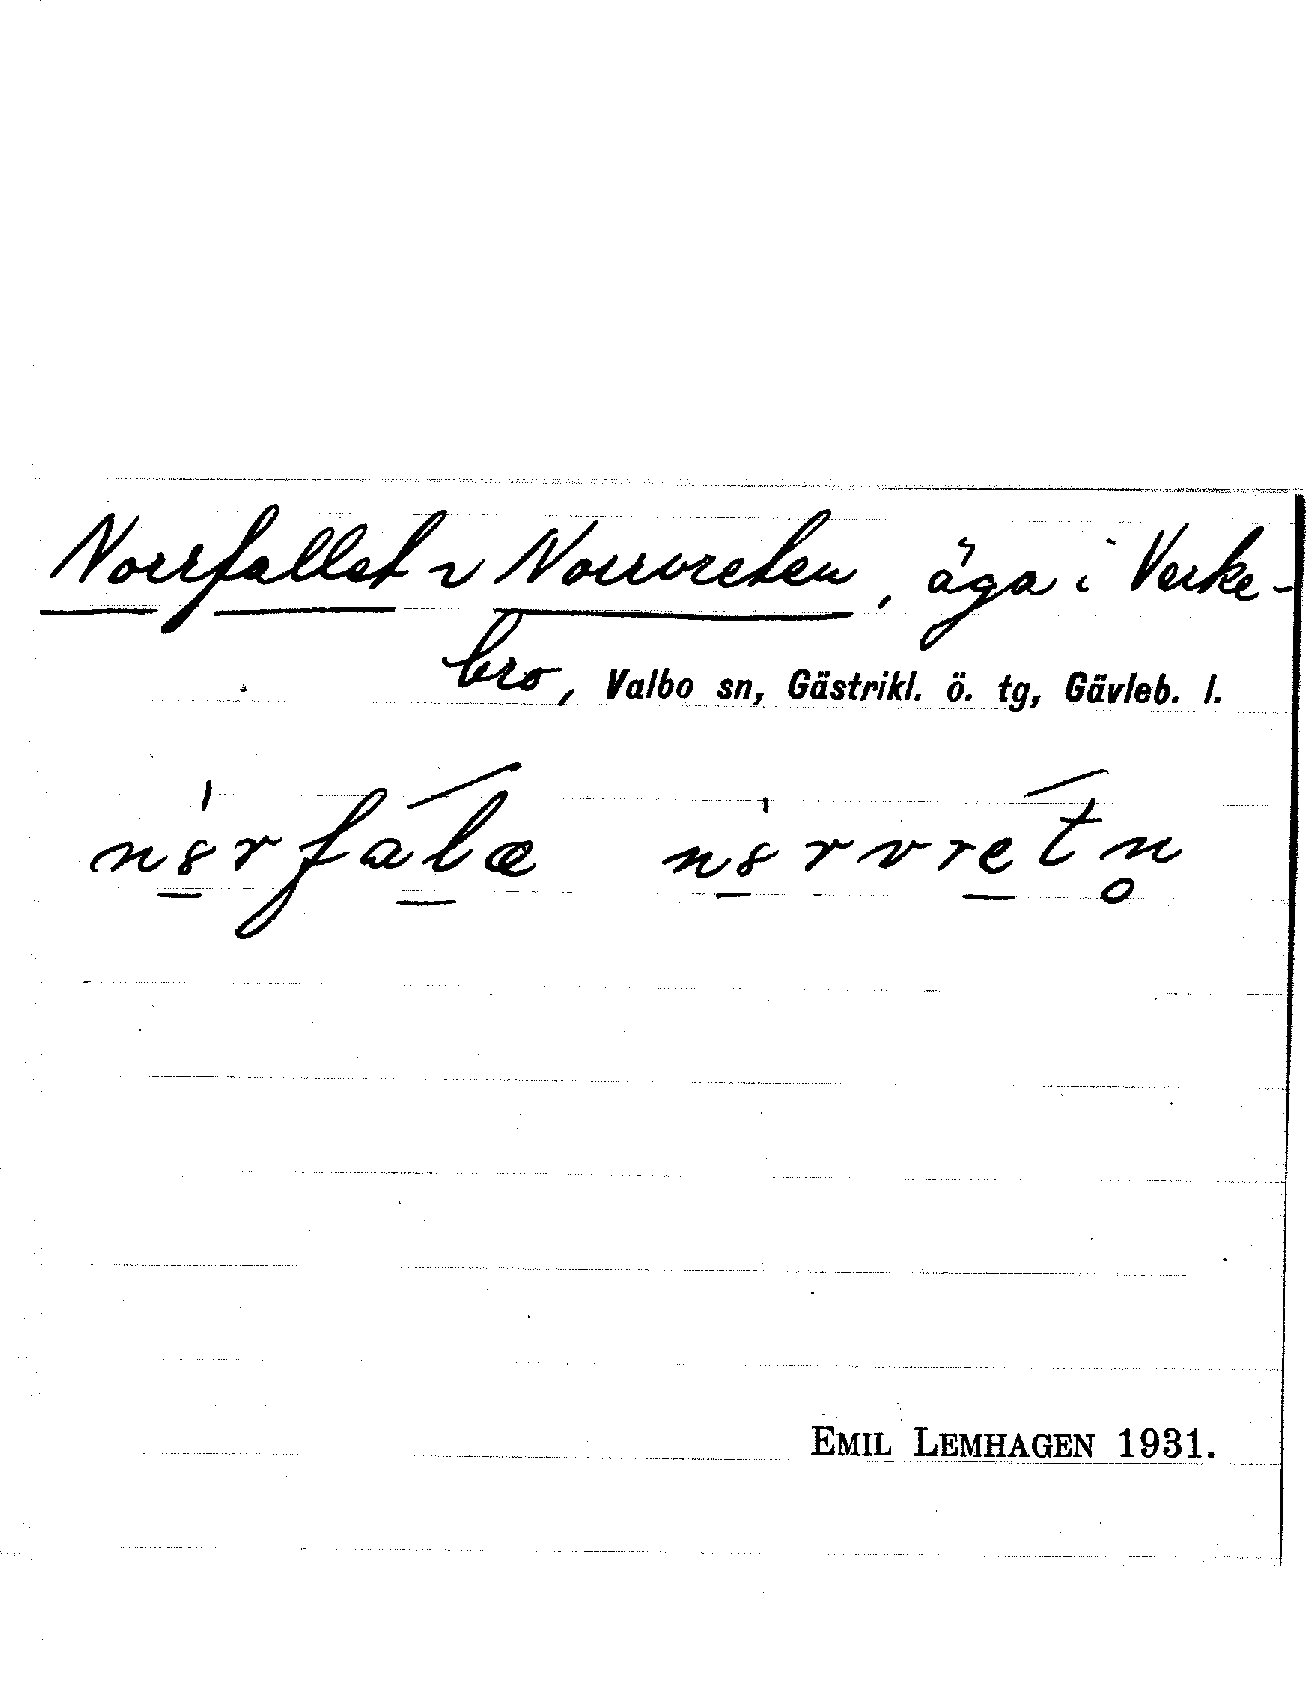 Norrfallet ~ Norrvreten, äga i Verke-
bro, Valbo sn, Gästrikl. ö. tg, Gävleb. l.
EMIL LEMHAGEN 1931.